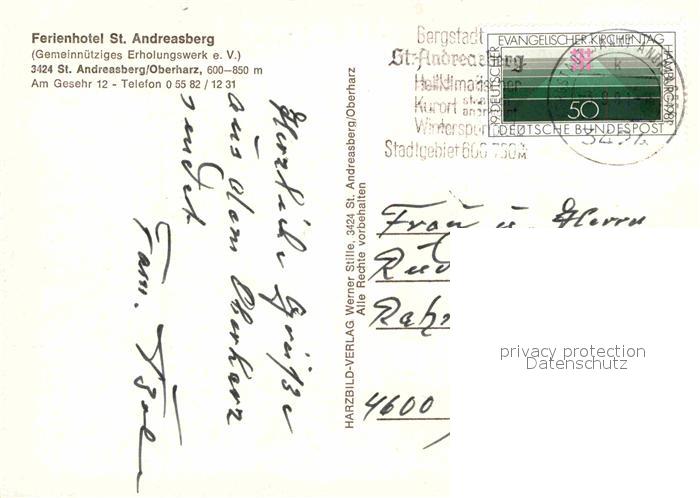 Ferienhotel St. Andreasberg
(Gemeinnütziges Erholungswerk e. V.)
3424 St. Andreasberg/Oberharz, 600—850 m
Am Gesehr 12 - Telefon 0 55 82 / 12 31
Herzliche Grüße
aus dem Oberharz
sendet
Fam.
HARZBILD-VERLAG Werner Stille, 3424 St. Andreasberg/Oberharz
Alle Rechte vorbehalten
Bergstadt
St. Andreasberg
Heilklimatischer
Kurort
Wintersport
Stadtgebiet 600-750 M
19. DEUTSCHER EVANGELISCHER KIRCHENTAG HAMBURG 1981
50
DEUTSCHE BUNDESPOST
Frau u. Herrn
4600
privacy protection
Datenschutz